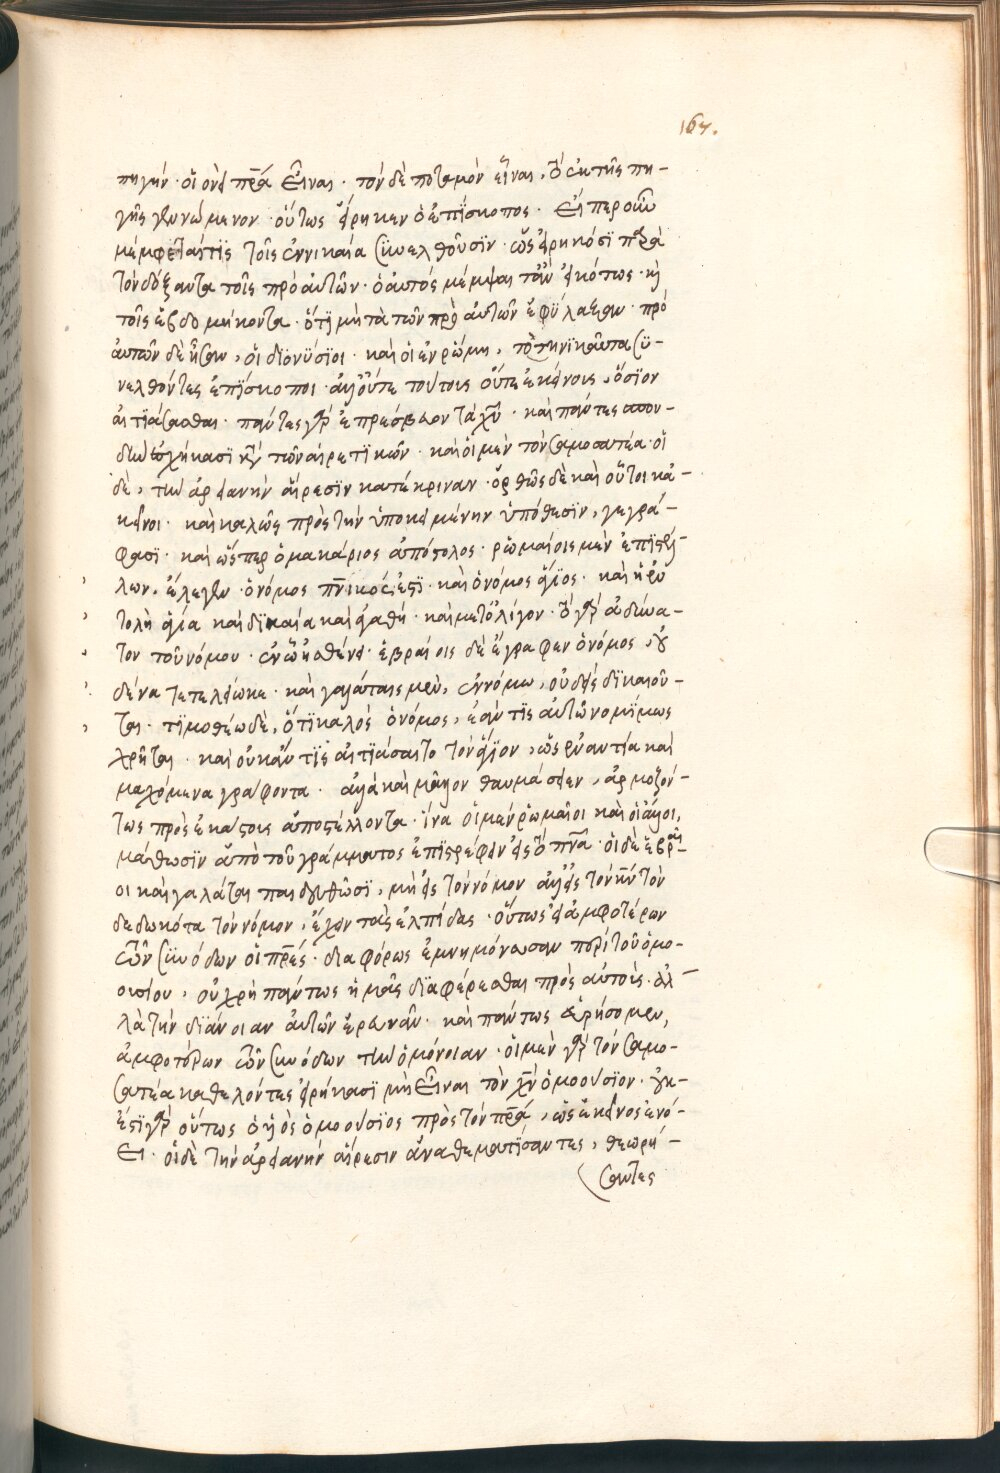 167.
πηγήν· οἱονεὶ πρ̅α εἶναι· τὸν δὲ ποταμὸν εἶναι, τὸ ἐκ τῆς πη-
γῆς γεννώμενον· οὕτως εἴρηκεν ὁ ἐπίσκοπος· εἴπερ οὖν
μέμφεται τίς τοῖς ἐν νικαία συνελθοῦσϊν· ὡς εἰρηκόσϊ παρὰ
τὸν δόξαντα τοῖς πρὸ αὐτῶν· ὁ αὐτὸς μέμψαιτ' ἂν εἰκότως· κὴ
τοῖς ἑβδομήκοντα· ὅτϊ μὴ τὰ τῶν πρὸ αὐτῶν ἐφύλαξαν· πρὸ
αὐτῶν δὲ ἦσαν, οἱ διονύσϊοι· καὶ οἱ ἐν ῥώμη, τὸ τηνϊκαῦτα συ-
νελθόντες ἐπίσκοποι· ἀλλ' οὔτε τούτοις οὔτε ἐκείνοις, ὅσϊον
αἰτϊάσασθαι· πάντες γὰρ ἐπρέσβευον τὰ χυ̅· καὶ πάντες σπου-
δὴν ἐσχήκασϊ κατὰ τῶν αἱρετϊκῶν· καὶ οἱ μὲν τὸν σαμοσατέα· οἱ
δὲ, τὴν ἀρειανὴν αἵρεσϊν κατέκριναν· ὀρθῶς δὲ καὶ οὗτοι κἀ-
κεῖνοι· καὶ καλῶς πρὸς τὴν ὑποκειμένην ὑπόθεσϊν, γεγρά-
φασϊ· καὶ ὥσπερ ὁ μακάριος ἀπόστολος· ῥωμαίοις μὲν ἐπϊστέλ-
λων, ἔλεγεν· ὁ νόμος πν̅ικός ἐστϊ· καὶ ὁ νόμος ἅγϊος· καὶ ἡ ἐν
τολὴ ἁγία καὶ δϊκαία καὶ ἀγαθή· καὶ μετ' ὀλίγον· τὸ γὰρ ἀδύνα-
τον τοῦ νόμου· ἐν ὧ ἠσθένει· ἑβραίοις δὲ ἔγραφεν ὁ νόμος, οὐ
δένα τετελείωκε· καὶ γαλάταις μὲν, ἐν νόμω, οὐδεὶς δικαιοῦ-
ται· τϊμοθέω δὲ, ὅτϊ καλὸς ὁ νόμος, ἐάν τϊς αὐτῶ νομϊμως
χρῆται· καὶ οὐκ ἄν τϊς αἰτϊάσαιτο τὸν ἅγϊον, ὡς ἐναντία καὶ
μαχόμενα γράφοντα· ἀλλὰ καὶ μᾶλλον θαυμάσειεν, ἁρμοζόν-
τως πρὸς ἑκάστους ἀποστέλλοντα· ἵνα οἱ μὲν ῥωμαῖοι καὶ οἱ ἄλλοι,
μάθωσϊν ἀπὸ τοῦ γράμματος ἐπϊστρέφειν εἰς τὸ πν̅α· οἱ δὲ ἑβραῖ-
οι καὶ γαλάται παιδευθῶσϊ, μὴ εἰς τὸν νόμον ἀλλ' εἰς τὸν κν̅ τὸν
δεδωκότα τὸν νόμον, ἔχειν τὰς ἐλπίδας· οὕτως εἰ ἀμφοτέρων
τῶν συνόδων οἱ πρ̅ες· διαφόρως ἐμνημόνευσαν περὶ τοῦ ὁμο-
ουσίου, οὐ χρὴ πάντως ἡμᾶς δϊαφέρεσθαι πρὸς αὐτοὺς· ἀλ-
λὰ τὴν δϊάνοιαν αὐτῶν ἐρευνᾶν· καὶ πάντως εὑρήσομεν,
ἀμφοτέρων τῶν συνόδων τὴν ὁμόνοιαν· οἱ μὲν γὰρ τὸν σαμο-
σατέα καθελόντες εἰρήκασϊ μὴ εἶναι τὸν χν̅ ὁμοούσϊον· οὐκ-
έστϊ γὰρ οὕτως ὁ ὑϊὸς ὁμοούσϊος πρὸς τὸν πρ̅α, ὡς ἐκεῖνος ἐνό-
ει· οἱ δὲ τὴν ἀρειανὴν αἵρεσιν ἀναθεματϊσαντες, θεωρή-
σαντες